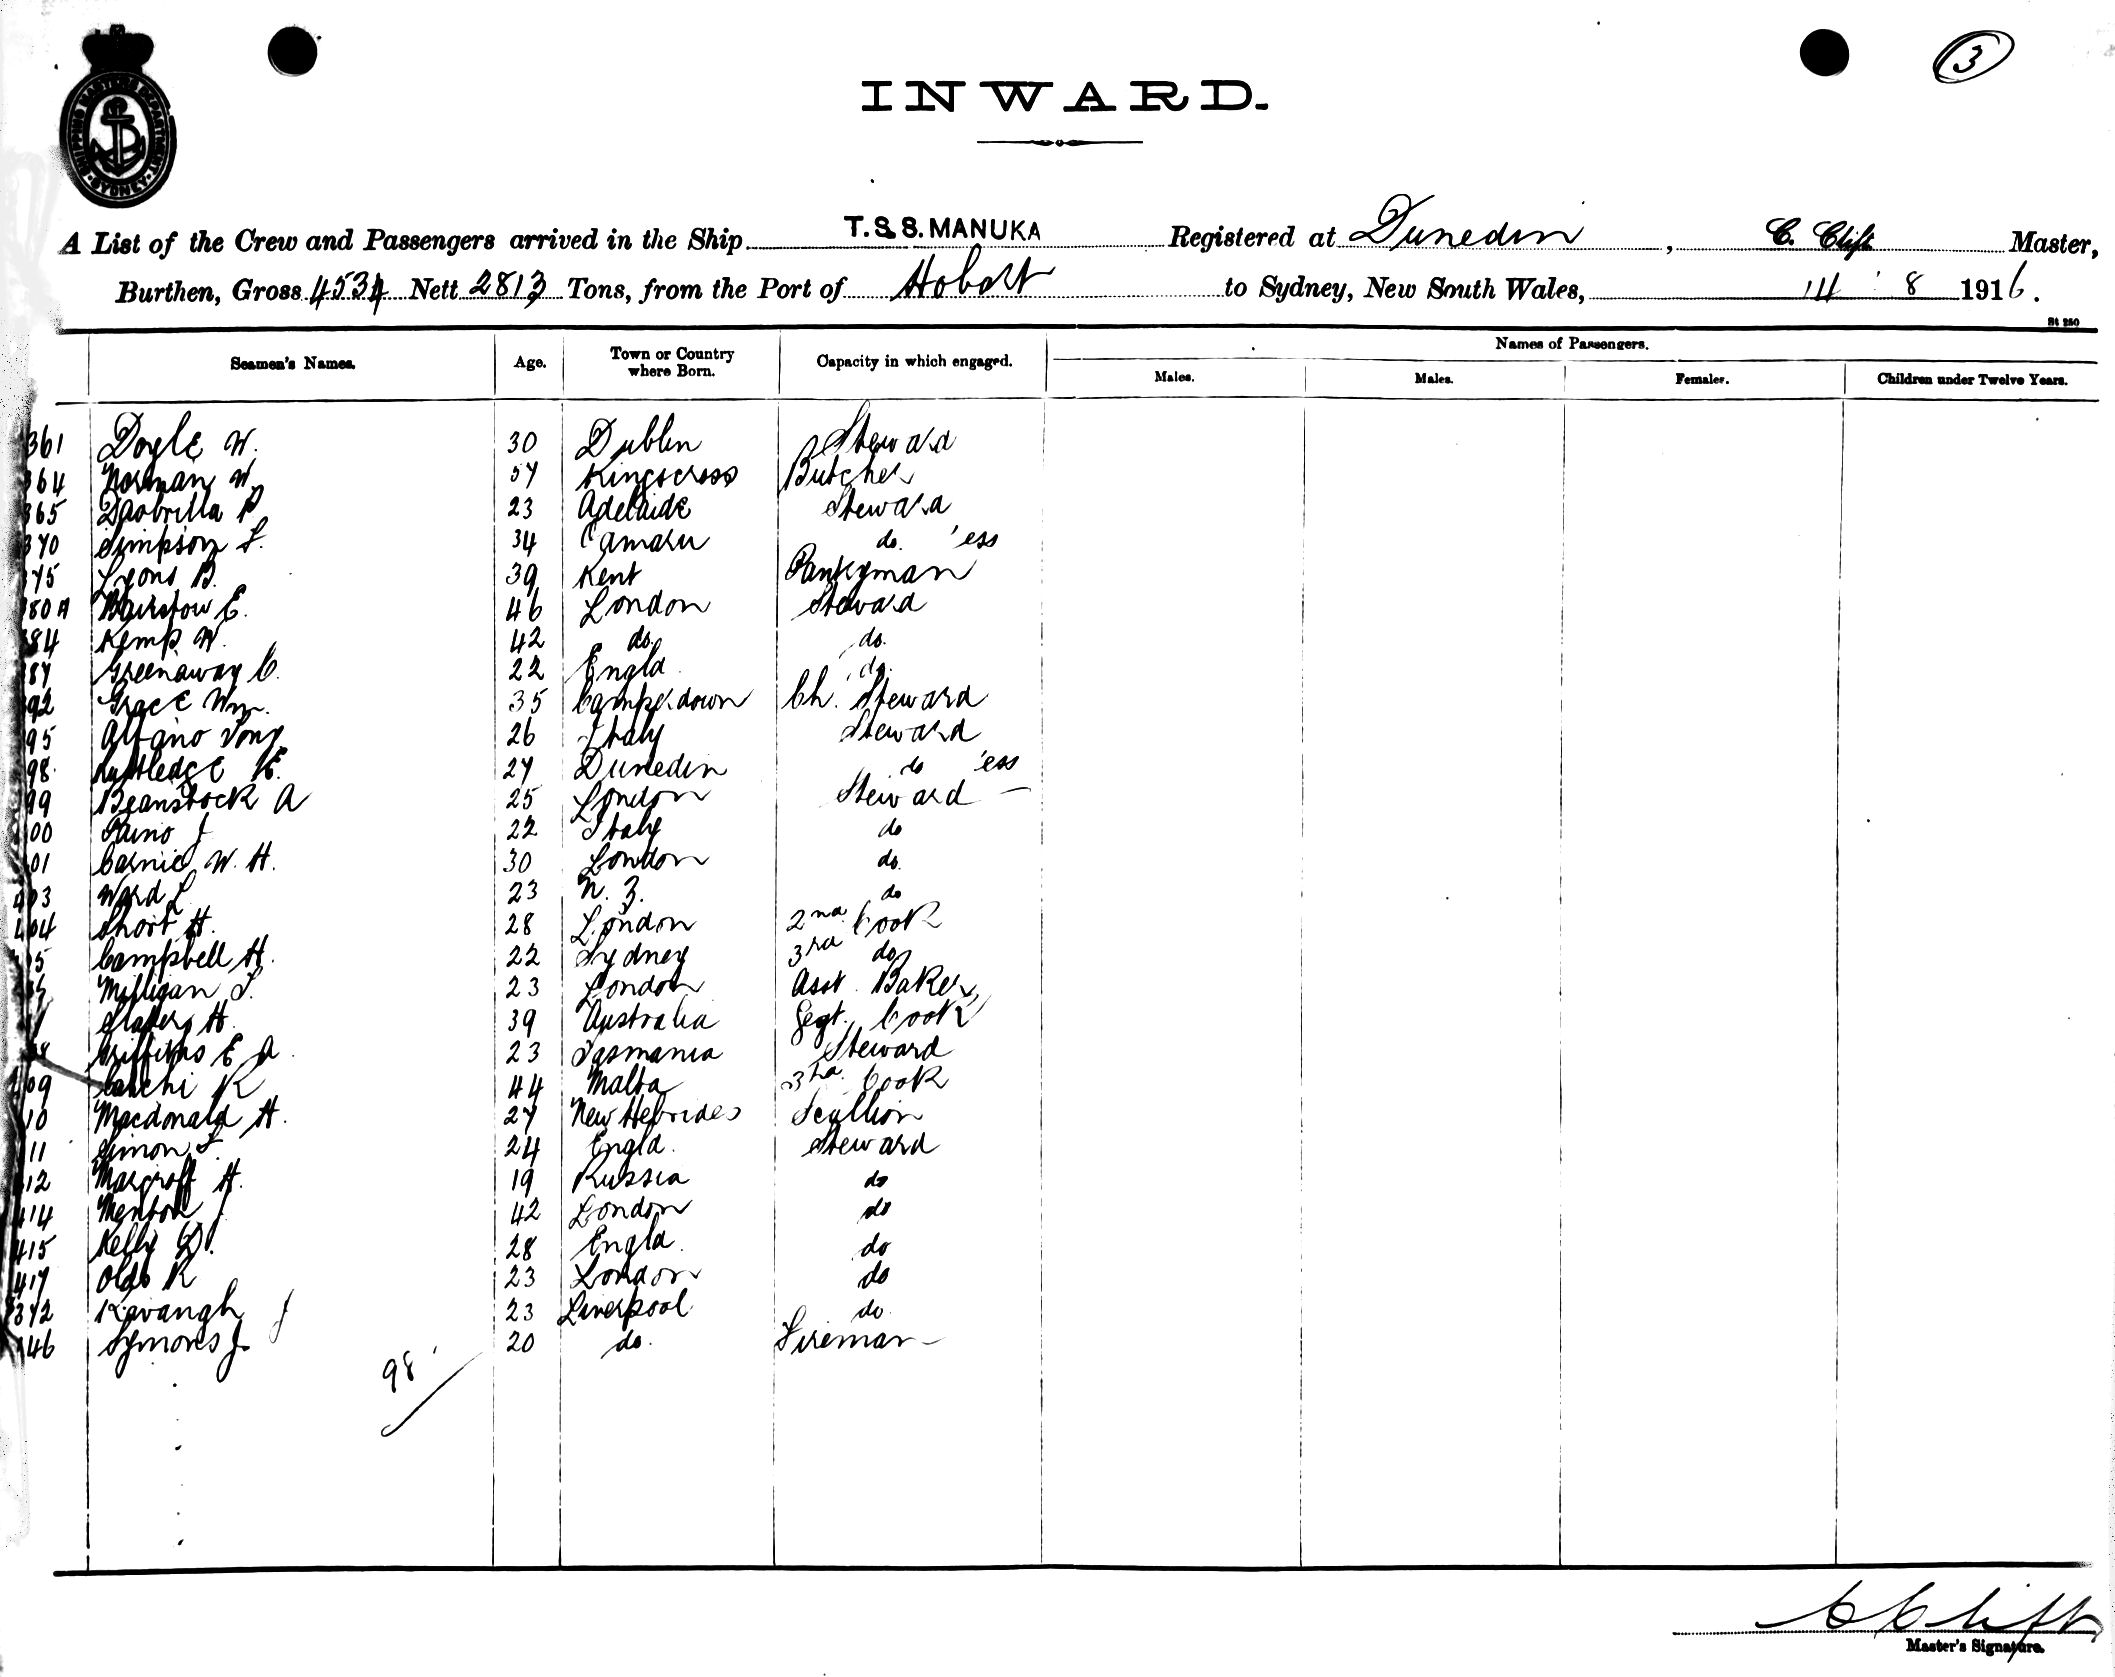 3
SHIPPING MASTERS DEPARTMENT SYDNEY
INWARD.
A List of the Crew and Passengers arrived in the Ship T.S.S. MANUKA Registered at Dunedin, C. Clift Master,
Burthen, Gross 4534 Nett 2813 Tons, from the Port of Hobart to Sydney, New South Wales, 8 1916.
St 250
Seamen's Names. Age. Town or Country where Born. Capacity in which engaged. Names of Passengers.
Males. Males. Females. Children under Twelve Years.
361 Doyle W. 30 Dublin Steward
364 Norman W. 57 Kingscross Butcher
365 Daobrilla P 23 Adelaide Steward
370 Simpson L. 34 Oamaru do. 'ess
375 Lyons B. 39 Kent Pantryman
380A Bairstow E. 46 London Steward
384 Kemp W. 42 do. do.
87 Greenaway C. 22 Engld. do.
92 Grace Wm. 35 Camperdown Ch. Steward
95 Alfano Tony 26 Italy Steward
98 Rutledge E. 27 Dunedin do 'ess
99 Beanstock A 25 London Steward
00 Paino J 22 Italy do
01 Carnie W. H. 30 London do.
403 Ward L 23 N. Z. do
404 Short H. 28 London 2nd Cook
05 Campbell H. 22 Sydney 3rd do
Milligan J. 23 London Asst. Baker
Slater H. 39 Australia Vegt. Cook
08 Griffiths E A. 23 Tasmania Steward
409 K 44 Malta 3rd Cook
10 Macdonald H. 27 New Hebrides Scullion
11 Simon L. 24 Engld. Steward
412 Margroff H. 19 Russia do
414 J 42 London do
415 Kelly D. 28 Engld. do
417 Olds R 23 London do
372 Kavangh J 23 Liverpool do.
46 Symons J. 20 do. Fireman
98
C Clift
Master's Signature.